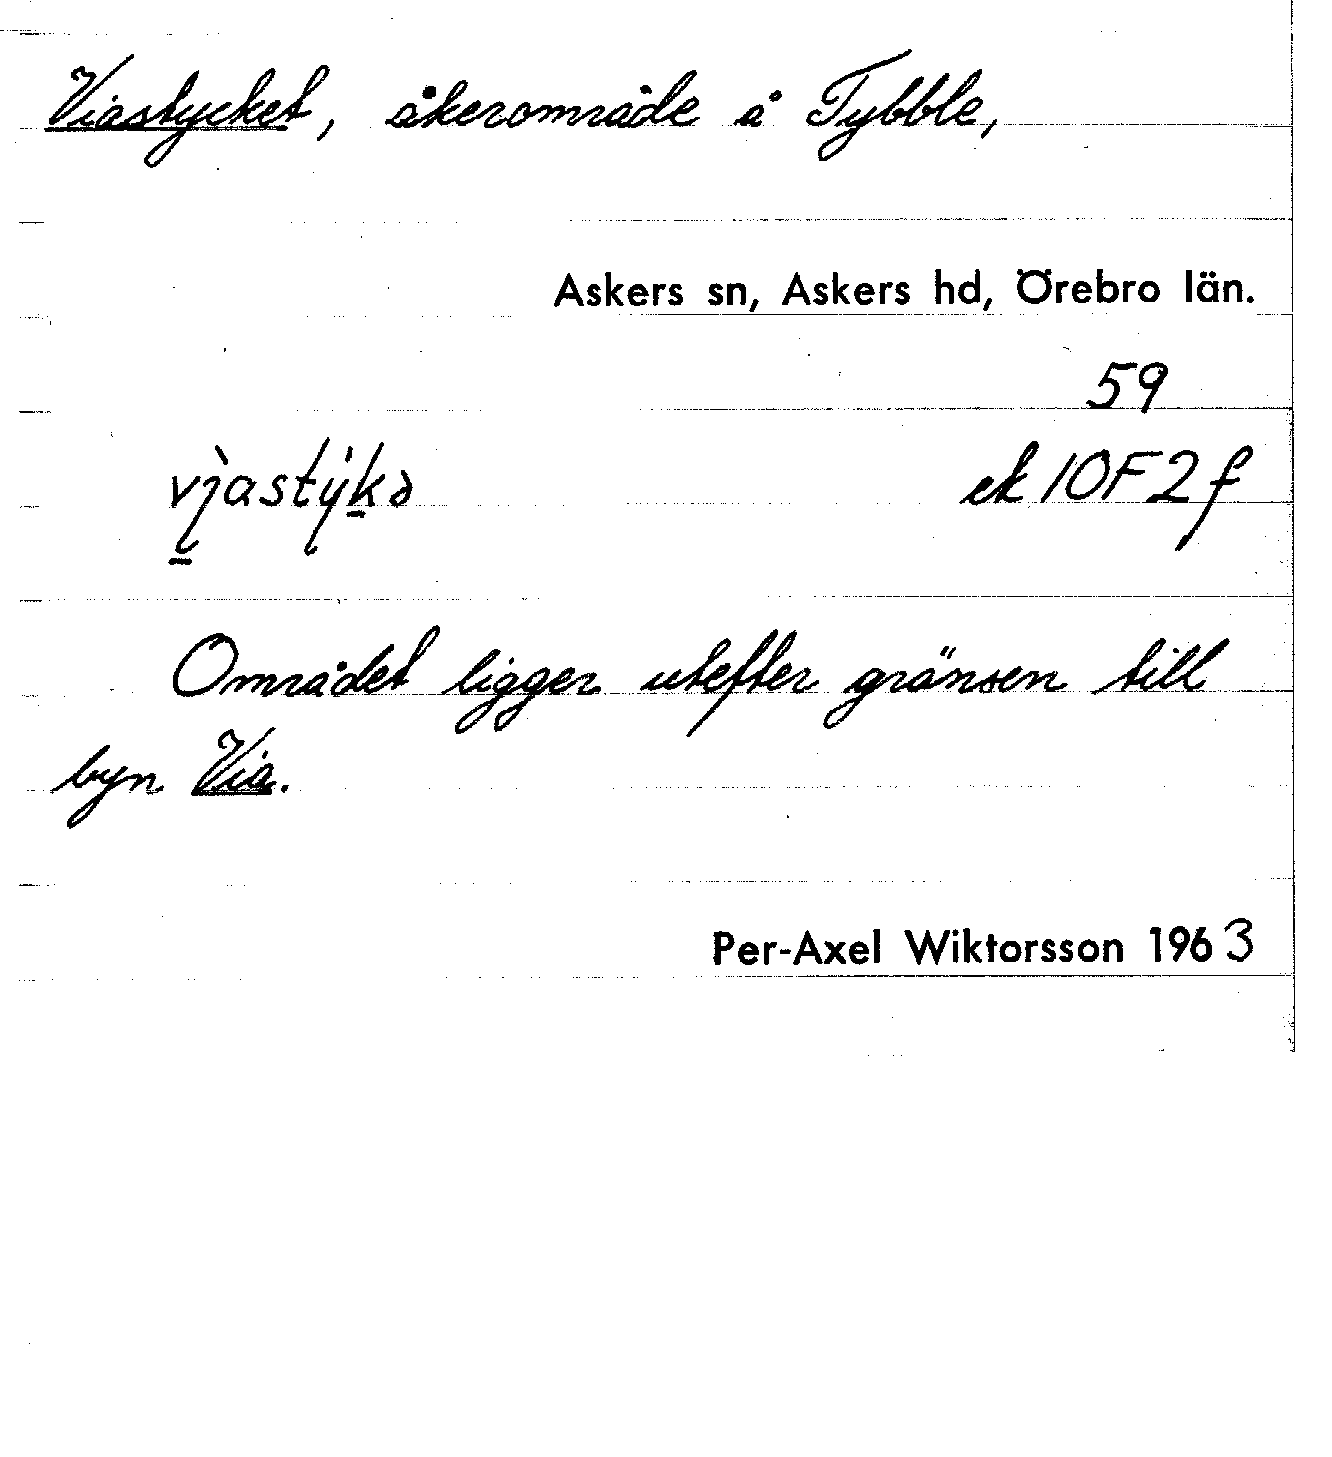 Viastycket, åkerområde å Tybble,
Askers sn, Askers hd, Örebro län.
59
ek 10F2f
Området ligger utefter gränsen till
byn Via.
Per-Axel Wiktorsson 1963